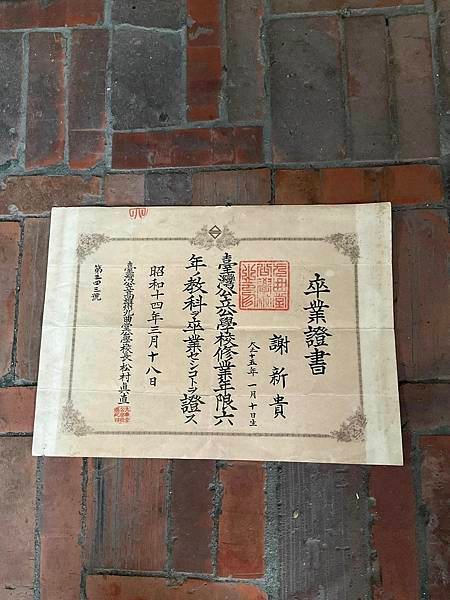 卒業證書
謝新貴
大正十五年一月十日生
臺灣公立公學校修業年限六
年ノ教科ヲ卒業セシコトヲ證ス
昭和十四年三月十八日
臺灣公立高雄州九曲堂公學校長 松村直